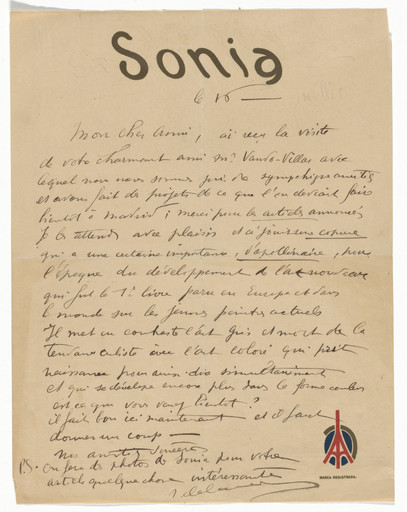 Sonia
le 18
Mon cher Ami, ai reçu la visite
de votre charmant ami Mr. Vando-Villar avec
lequel nous nous sommes pris de
et avons fait des projets de ce que l'on devrait faire
bientôt à Madrid; merci pour les articles annoncés
Je les attends avec plaisir et ai
qui a une certaine importance, d'apollinaire, sur
l'époque du développement de l'art nouveau
qui fut le 1r livre paru en Europe et dans
le monde sur les jeunes peintres actuels
Il met en contraste l'art gris et mort de la
tendance cubiste avec l'art coloré qui
naissance pour ainsi dire simultanément
et qui se développe encore plus dans la forme couleur
est ce que vous venez bientôt?
il fait bon ici maintenant et il faut
donner un coup —
nos amitiés
P.S. de photos de Sonia pour votre
article quelque chose intéressante
MARCA REGISTRADA.